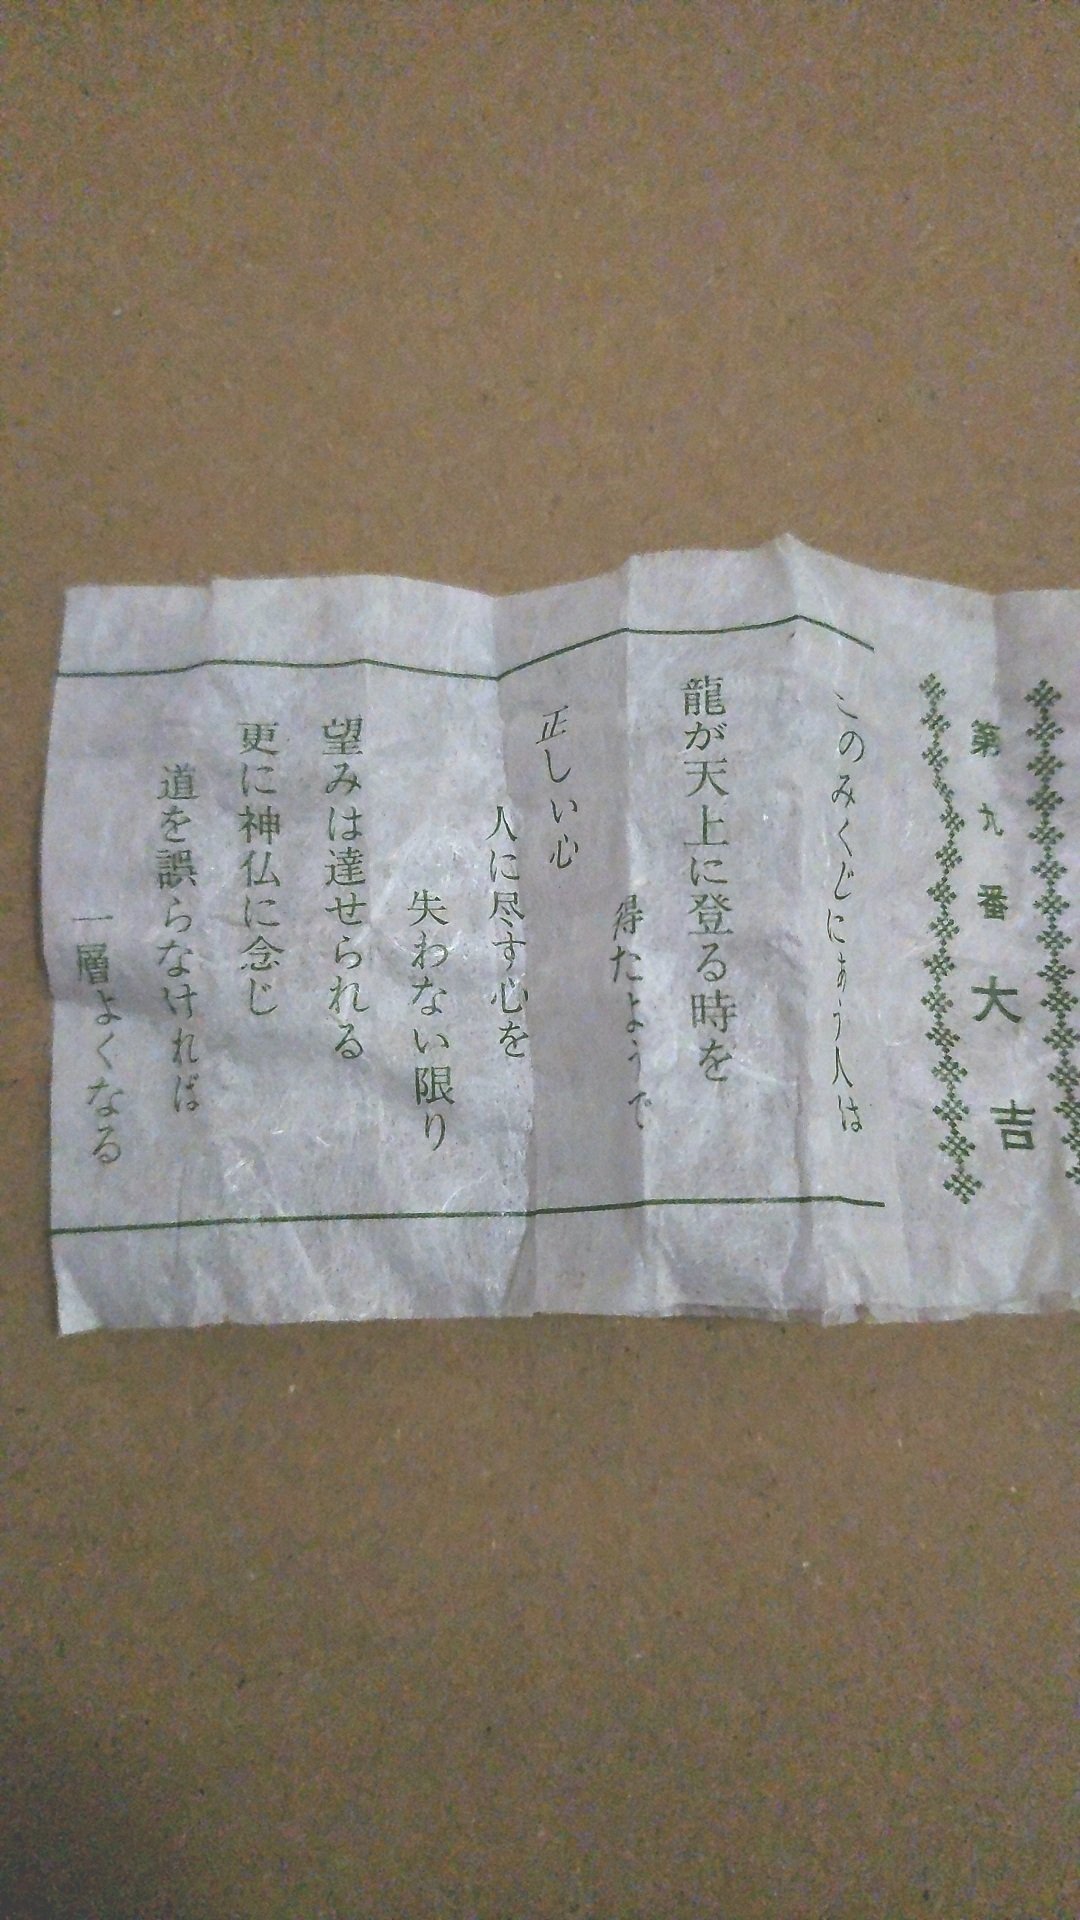 第九番 大吉
このみくじにあう人は
龍が天上に登る時を
得たようで
正しい心
人に尽す心を
失わない限り
望みは達せられる
更に神仏に念じ
道を誤らなければ
一層よくなる